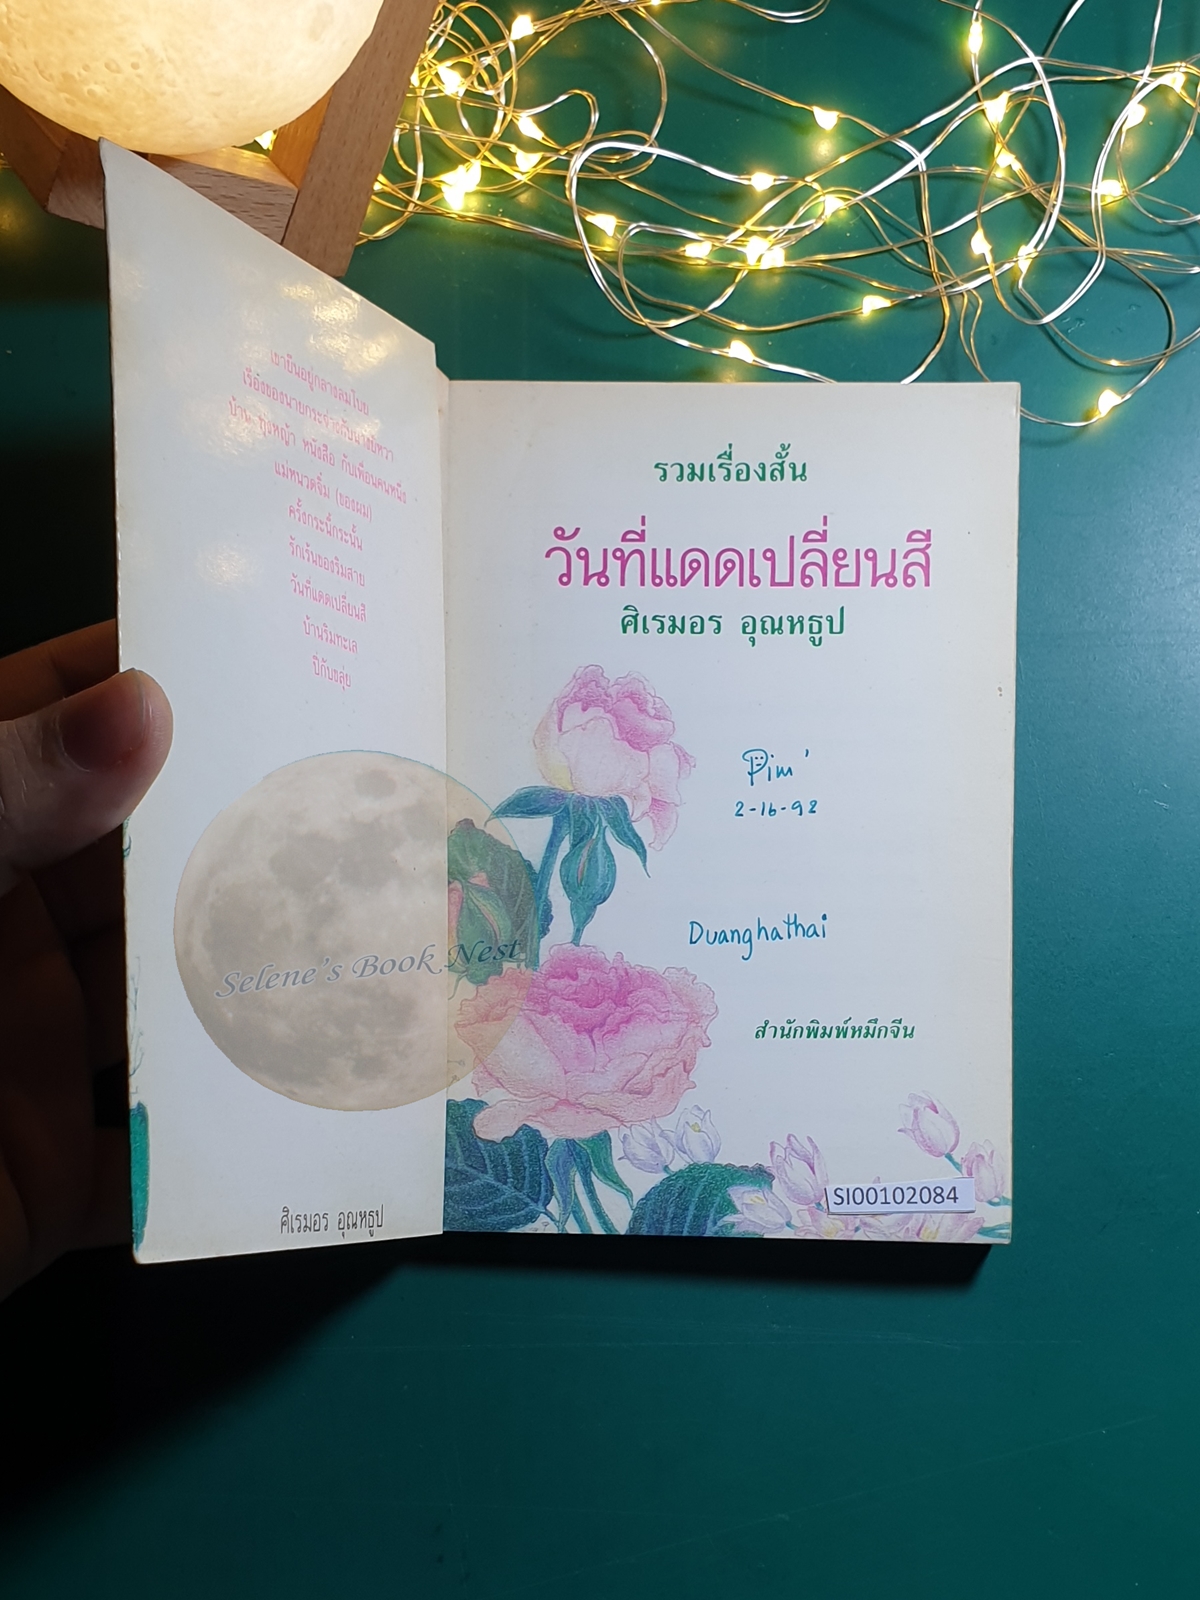 เขายืนอยู่กลางลมโบย
เรื่องของนายกระจ่างกับนางบัทวา
บ้าน ทุ่งหญ้า หนังสือ กับเพื่อนคนหนึ่ง
แม่หนวดจิ๋ม (ของผม)
ครั้งกระนี้กระนั้น
รักเร้นของริมสาย
วันที่แดดเปลี่ยนสี
บ้านริมทะเล
ปี่กับขลุ่ย
Selene's Book Nest
ศิเรมอร อุณหธูป
รวมเรื่องสั้น
วันที่แดดเปลี่ยนสี
ศิเรมอร อุณหธูป
Pim'
2-16-92
Duanghathai
สำนักพิมพ์หมึกจีน
SI00102084